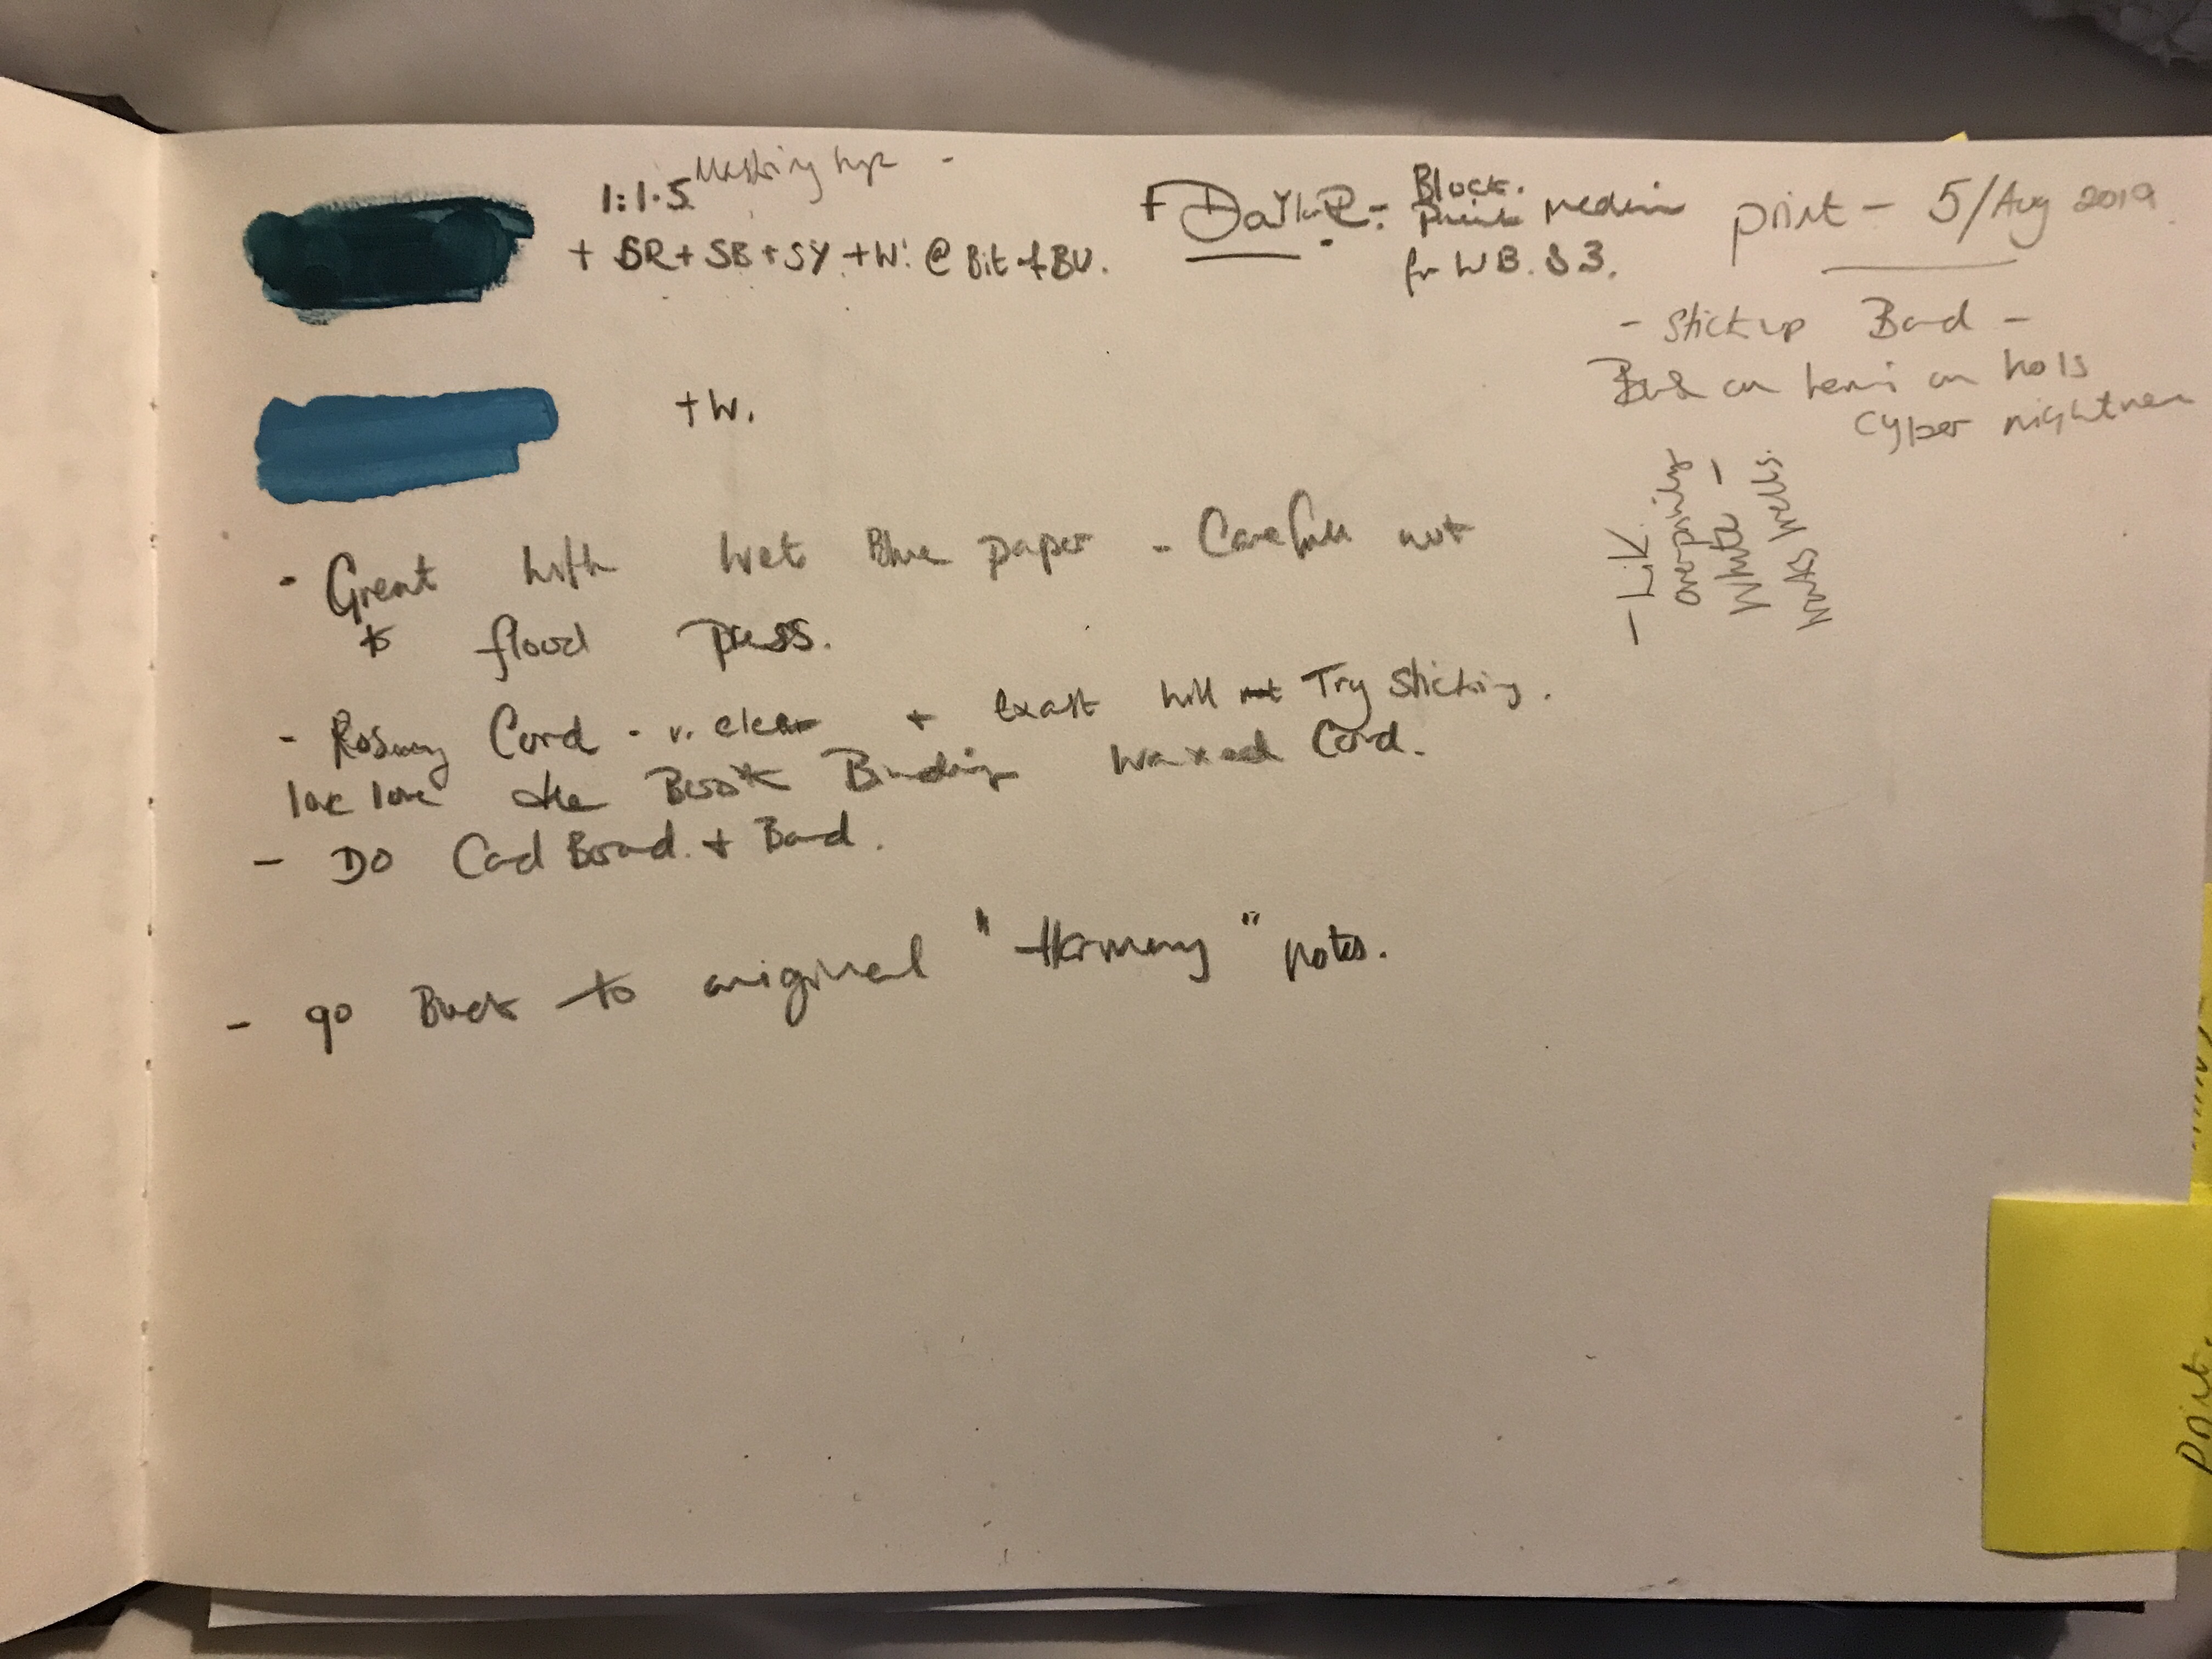 1:1.5
+ BR + SB + SY + W. @ Bit of BU.
Block.
Print medium
for WB. & 3.
print - 5/Aug 2019
- Stick up Band -
on hols
Cyber nightmare
+W.
- Great with wet Blue paper - Careful not
to flood press.
- Rosemary Cord - v. clear + exact will not Try sticking.
love love the Book Binding waxed Cord.
- DO Card Board. + Band.
- go Back to original "Harmony" notes.
- Lik
overprinting
White -
works well.
print.